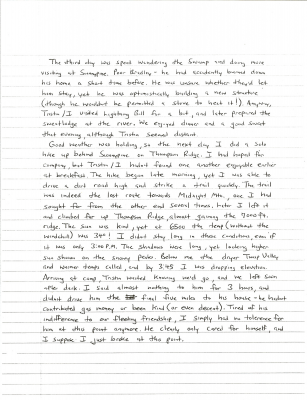 The third day was spent wandering the Swamp and doing more
visiting at Swampine. Poor Bradley - he had accidently burned down
his home a short time before. He was unsure whether they'd let
him stay, yet he was optimistically building a new structure
(though he wouldn't be permitted a stove to heat it!). Anyway,
Tristan / I visited Lightning Bill for a bit, and later prepared the
sweatlodge at the river. We enjoyed dinner and a good sweat
that evening, although Tristan seemed distant.
Good weather was holding, so the next day I did a solo
hike up behind Swampine on Thompson Ridge. I had hoped for
company, but Tristan / I hadn't found one another enjoyable earlier
at breakfast. The hike began late morning, yet I was able to
drive a dirt road high and strike a trail quickly. The trail
was indeed the last route towards Midnight Mtn, one I had
sought for from the other end several times. Later I left it
and climbed far up Thompson Ridge, almost gaining the 7000 ft.
ridge. The sun was kind, yet at 6500 the temp (without the
windchill) was 340! I didn't stay long in those conditions, even if
it was only 3:00 P.M. The shadows were long, yet looking higher
sun shone on the snowy peaks. Below me the drier Twisp Valley
and warmer temps called, and by 3:45 I was dropping elevation.
Arriving at camp Tristan waited knowing we'd go, and we left soon
after dark. I said almost nothing to him for 3 hours, and
didn't drive him the final five miles to his house - he hadn't
contributed gas money or been kind (or even decent). Tired of his
indifference to our fleeting friendship, I simply had no tolerance for
him at this point anymore. He clearly only cared for himself, and
I suppose I just broke at this point.